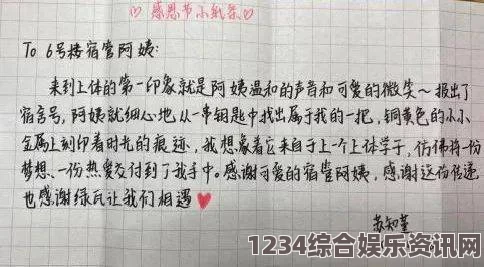 ♡ 感恩节小纸条♡
To 6号楼宿管阿姨:
来到上体的第一印象就是阿姨温和的声音和可爱的微笑~报出了
宿舍号,阿姨就细心地从一串钥匙中找出属于我的一把,铜黄色的小小
金属上刻印着时光的痕迹,我想象着它来自于上一个上体学子,仿佛将一份
梦想、一份热爱交付到了我手中。感谢可爱的宿管阿姨,感谢这份传递
也感谢绿瓦让我们相遇❤
苏知堇
1234综合娱乐资讯网